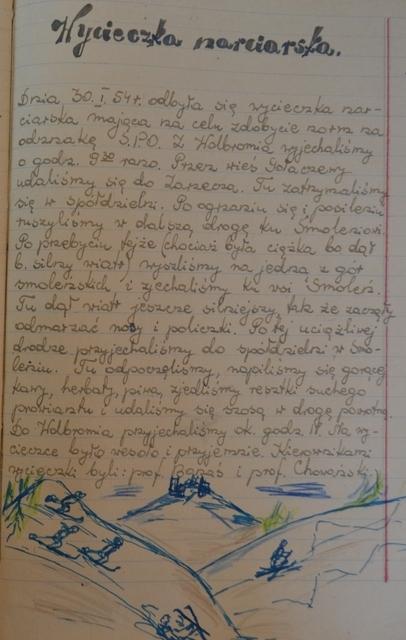 Wycieczka narciarska.
Dnia 30.I.54r. odbyła się wycieczka nar-
ciarska mająca na celu zdobycie norm na
odznakę S.P.O. Z Wolbromia wyjechaliśmy
o godz. 9³⁰ rano. Przez wieś Gołaczewy
udaliśmy się do Zarzecza. Tu zatrzymaliśmy
się w spółdzielni. Po ogrzaniu się i posileniu
ruszyliśmy w dalszą drogę ku Smoleniowi.
Po przebyciu tejże (chociaż była ciężka bo dął
b. silny wiatr) wyszliśmy na jedną z gór
smoleńskich i zjechaliśmy ku wsi Smoleń.
Tu dął wiatr jeszcze silniejszy, tak że zaczęły
odmarzać nosy i policzki. Po tej uciążliwej
drodze przyjechaliśmy do spółdzielni w Smo-
leniu. Tu odpoczęliśmy, napiliśmy się gorącej
kawy, herbaty, piwa, zjedliśmy resztki suchego
prowiantu i udaliśmy się szosą w drogę powrotną.
Do Wolbromia przyjechaliśmy ok. godz. Na wy-
cieczce było wesoło i przyjemnie. Kierownikami
wycieczki byli: prof. i prof.